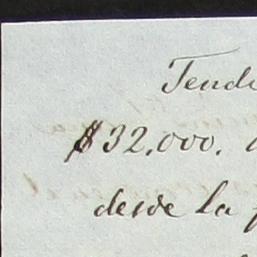 Tend
$32.000.
desde la